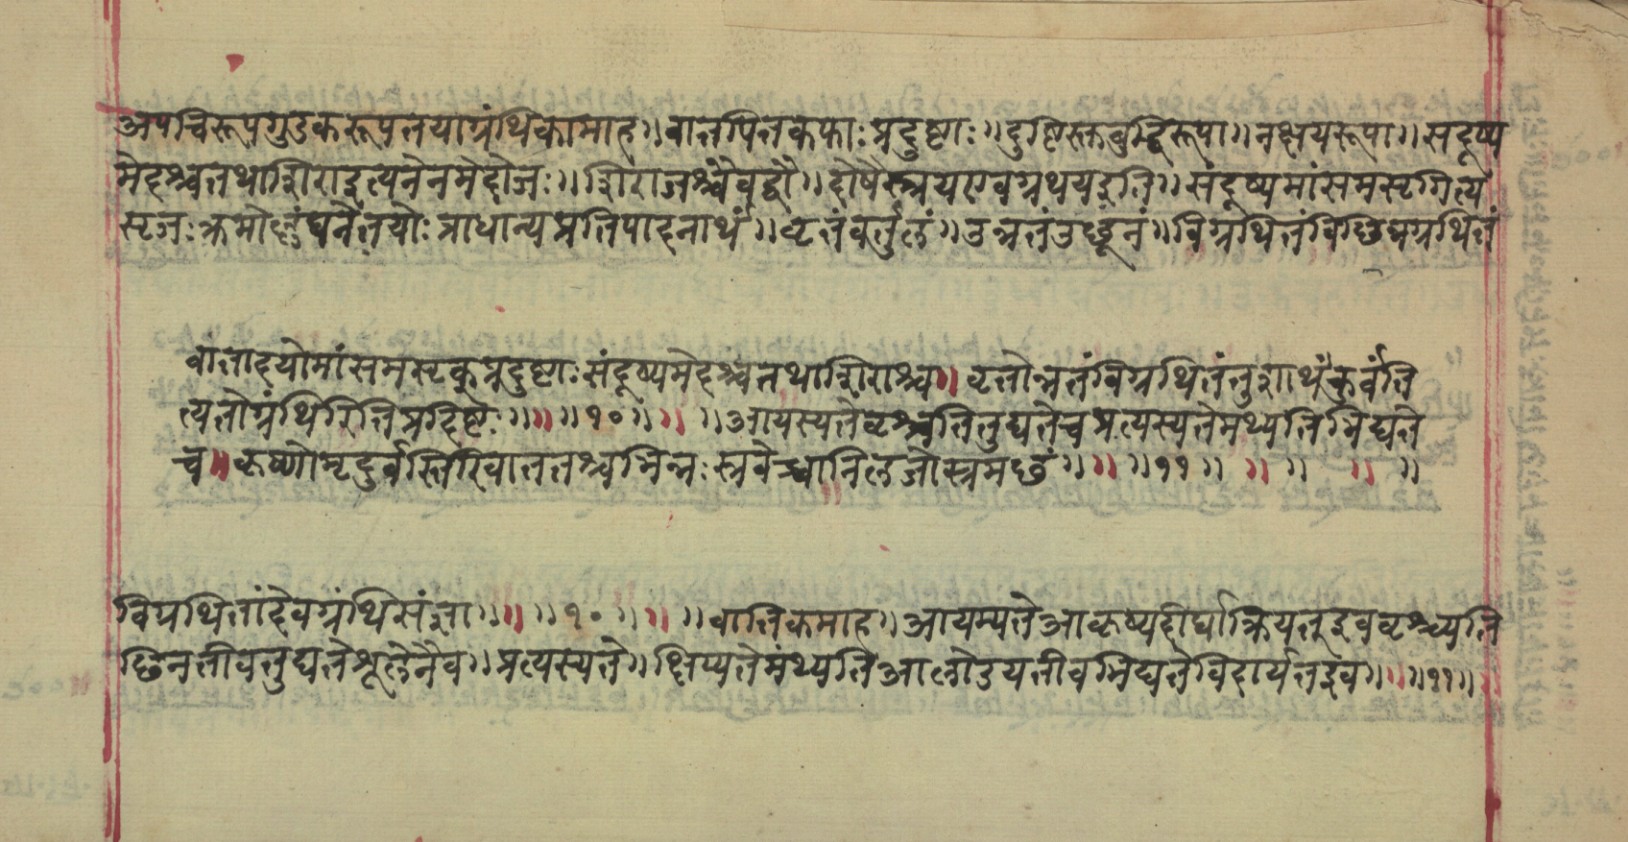 अपचिरूपगुडकरूपतयाग्रंथिकामाह॥वातपित्तकफाः प्रदुष्टाः॥दुष्टिरुक्तवुद्धिरूपा॥नक्षयरूपा॥सदूष्य
मेदश्चतथाशिराइत्यनेनमेदोजः॥शिराजश्चैवद्वौ॥दोषैस्त्रयएवग्रथयइति॥संदूष्यमांसमसृगित्य
सृजः क्रमोल्लंघनैतयोः प्राधान्यप्रतिपादनार्थं॥वृत्तंवर्तुलं॥उन्नतंउछूनं॥विग्रथितंविछिन्नग्रथितं
वातादयोमांसमसृक्प्रदुष्टाः संदूष्यमेदश्चतथाशिराश्च॥वृत्तोन्नतंविग्रथितंतुशोथंकुर्वंति
त्यतोग्रंथिरितिप्रदिष्टः॥॥॥१०॥॥॥आयस्यतेवृश्चतितुद्यतेचप्रत्यस्यतेमथ्यतिभिद्यते
च॥कृष्णोमृदुर्वस्तिरिवाततश्चभिन्नः स्रवेच्चानिलजोस्रमछं॥॥॥११॥॥॥॥॥
विपथितांदेवग्रंथिसंज्ञा॥॥॥१०॥॥॥वातिकमाह॥आयम्यतेआकृष्यदीर्घाक्रियतइववृश्च्यति
छिनत्तीवतुद्यतेशूलेनैव॥प्रत्यस्यते॥क्षिप्यतेमंथ्यतिआलोडयतीवभिद्यतेविदार्यतइव॥॥॥११॥